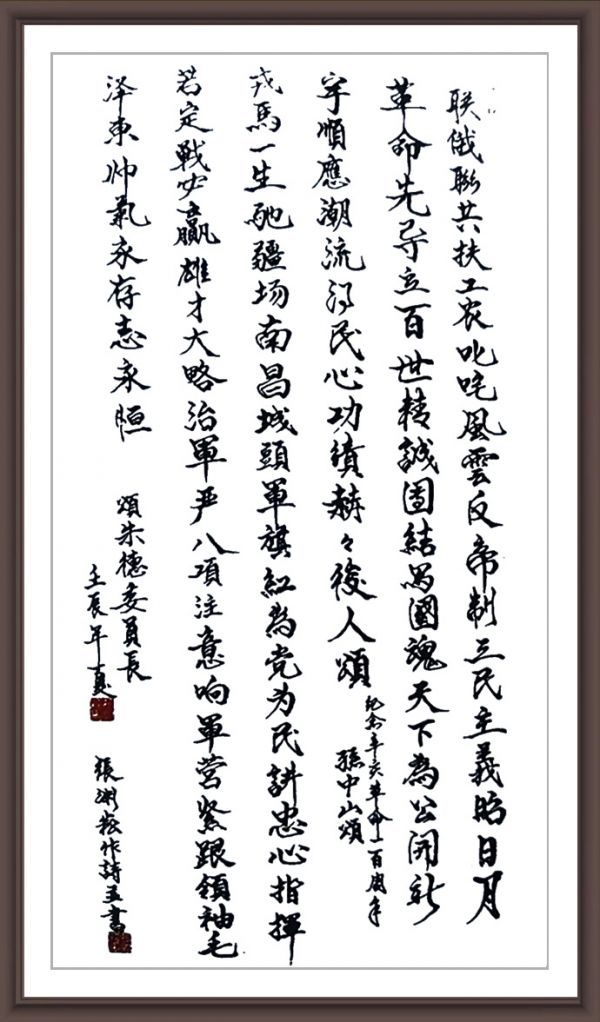 联俄聯共扶工农叱咤風雲反帝制三民主義昭日月
革命先导立百世精誠固結為國魂天下為公開新
宇順應潮流得民心功績赫々後人頌
纪念辛亥革命一百周年
孫中山頌
戎馬一生馳疆场南昌城頭軍旗紅為党为民讲忠心指揮
若定戰必贏雄才大略治軍严八項注意响軍营紧跟領袖毛
泽東帅氣永存志永恒
頌朱德委員長
壬辰年夏
張作詩并書